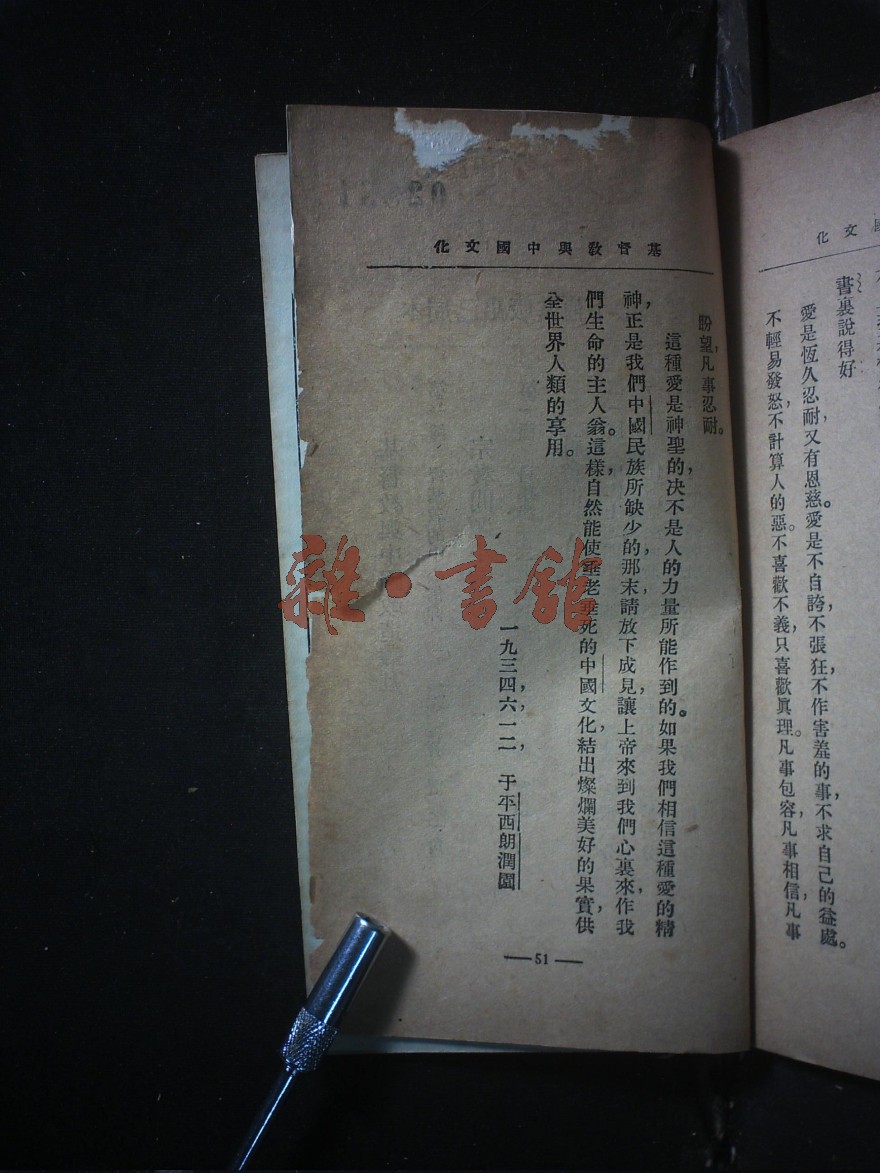 國文化
書裏說得好
愛是恆久忍耐，又有恩慈。愛是不自誇，不張狂，不作害羞的事，不求自己的益處。
不輕易發怒，不計算人的惡。不喜歡不義，只喜歡眞理。凡事包容，凡事相信，凡事
基督敎與中國文化
盼望，凡事忍耐。
這種愛是神聖的，决不是人的力量所能作到的。如果我們相信這種愛的精
神，正是我們中國民族所缺少的，那末，請放下成見，讓上帝來到我們心裏來，作我
們生命的主人翁。這樣，自然能使垂老垂死的中國文化，結出燦爛美好的果實，供
全世界人類的享用。
一九三四，六，一二，于平西朗潤園
— 51 —
雜·書館